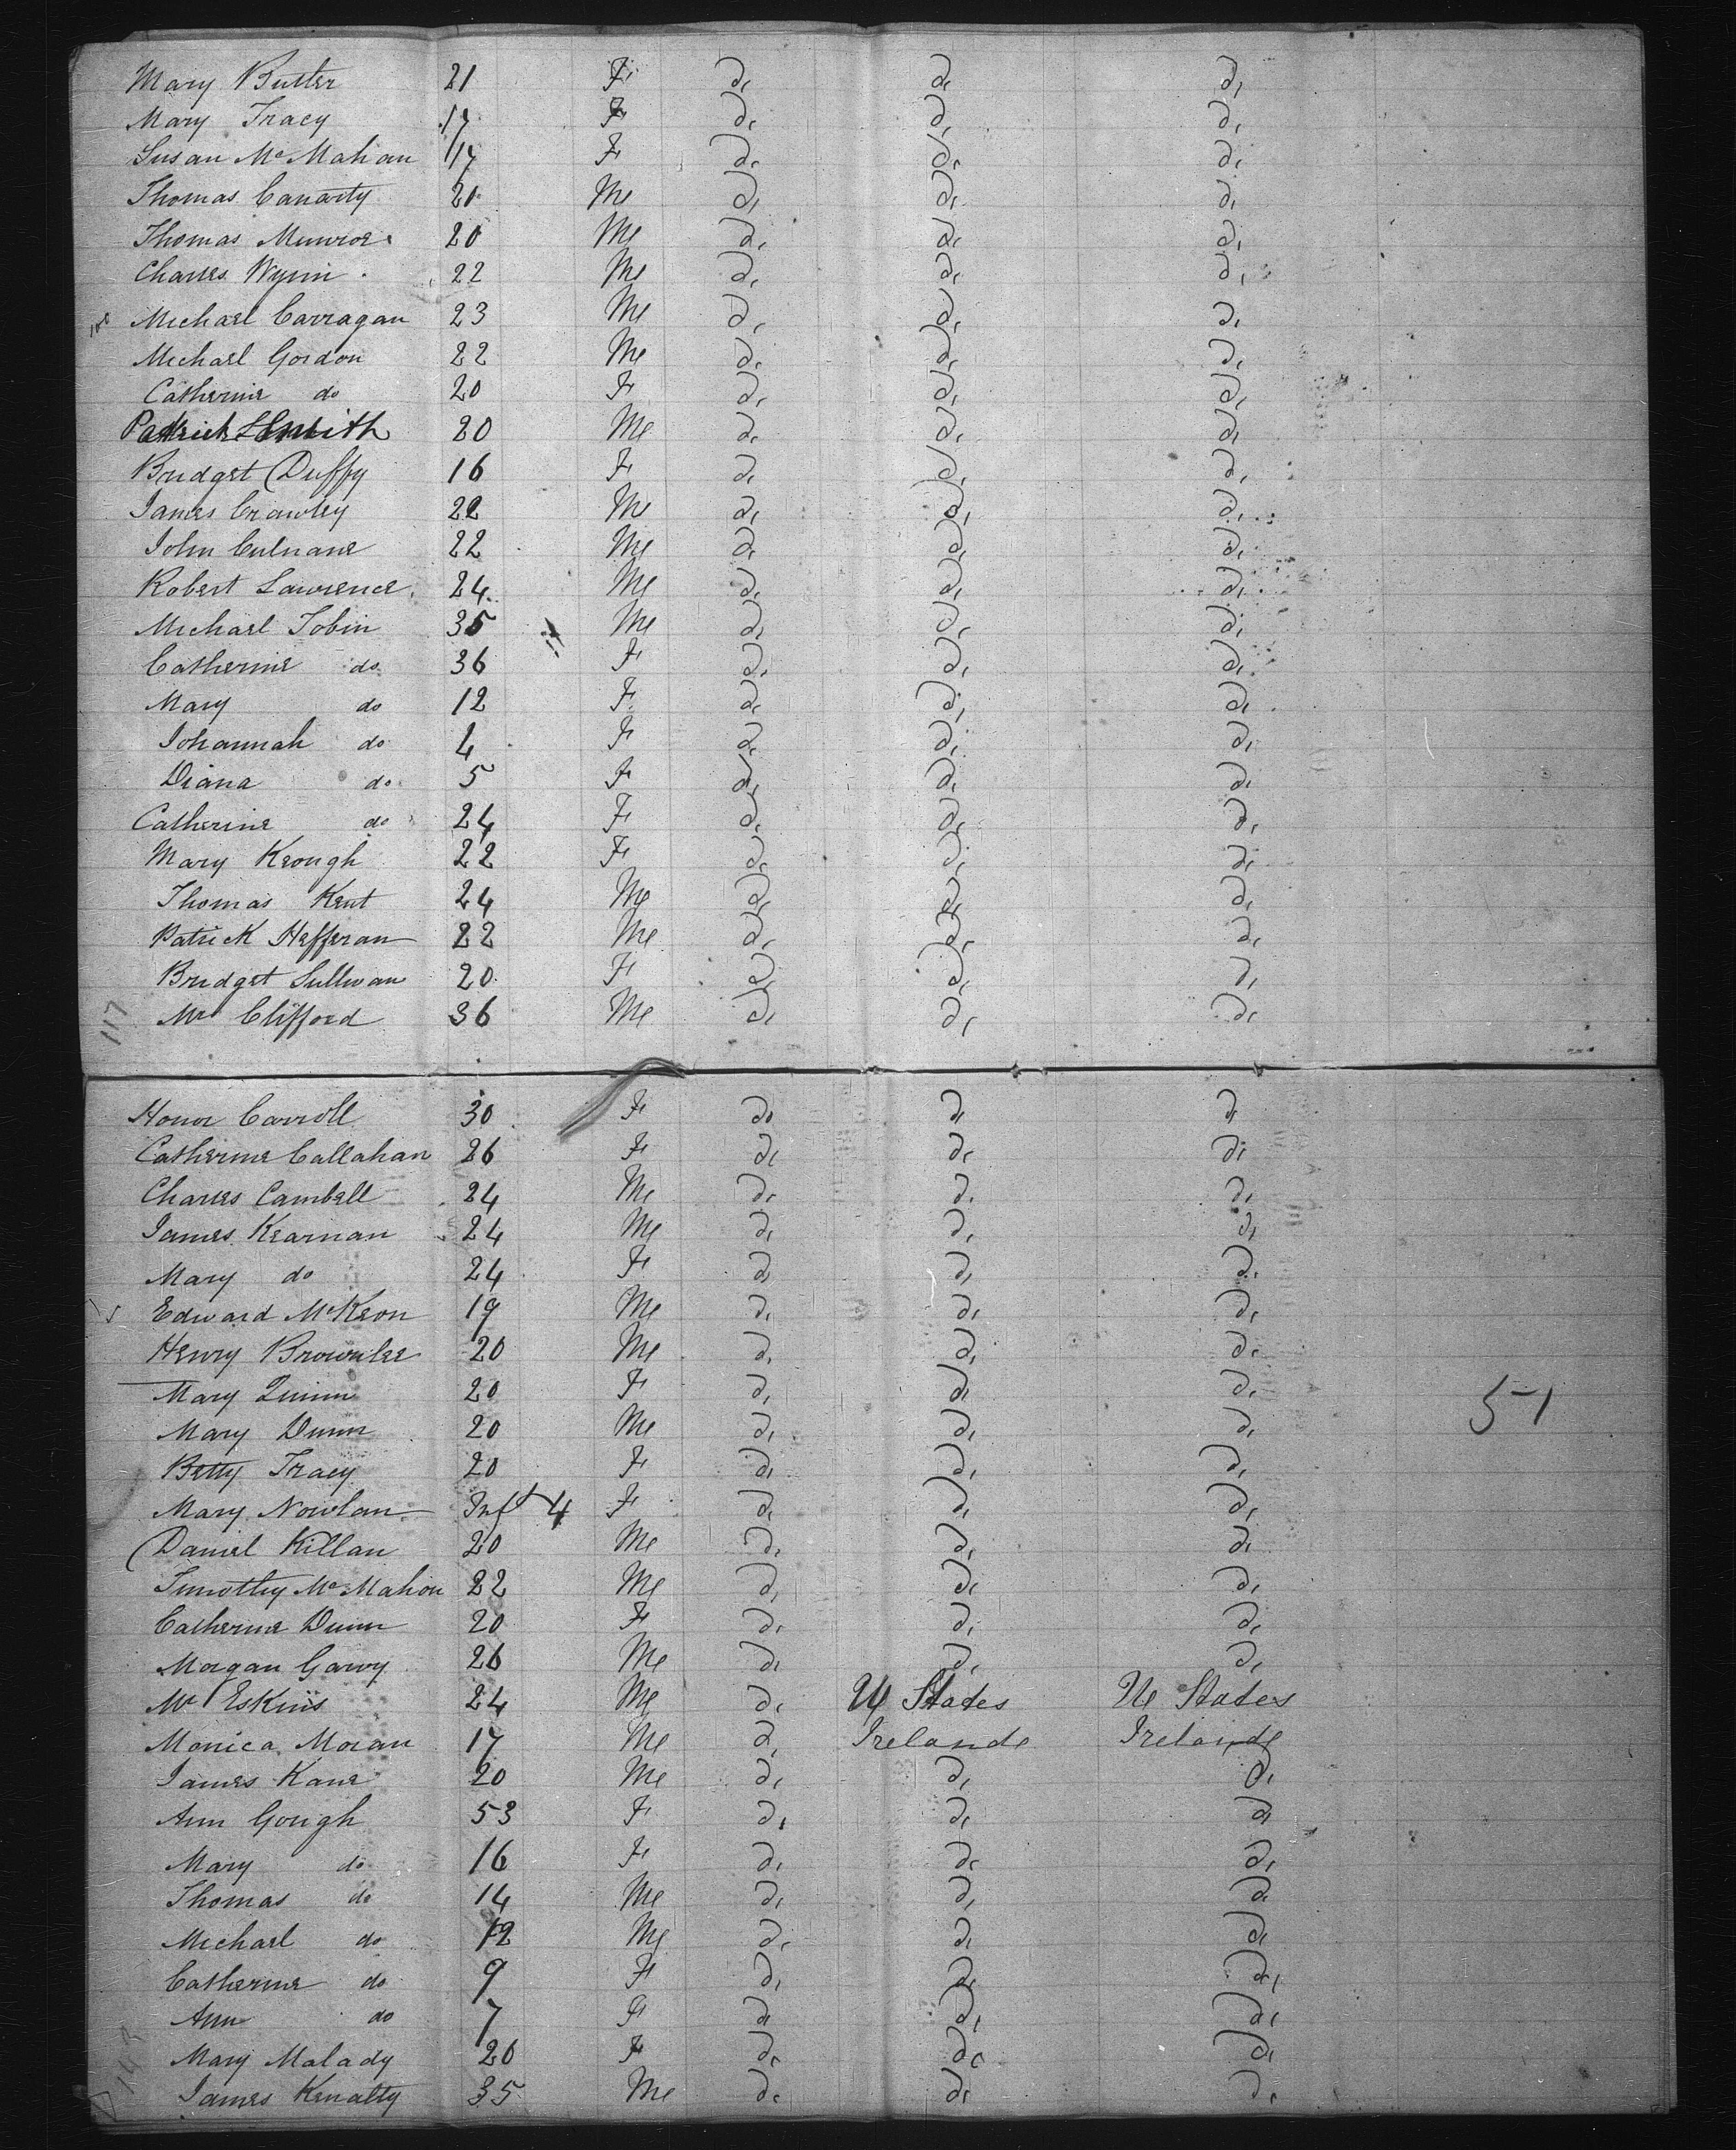 Mary Butler 21 F d, d, d,
Mary Tracy 17 F d, d, d,
Susan McMahan 17 F d, d, d,
Thomas Canarty 20 Me d, d, d,
Thomas Munroe 20 Me d, d, d,
Charles Wynn 22 Me d, d, d,
Michael Carragan 23 Me d, d, d,
Michael Gordon 22 Me d, d, d,
Catherine do 20 F d, d, d,
Patrick Smith 20 Me d, d, d,
Bridget Duffy 16 F d, d, d,
James Crawley 22 Me d, d, d,
John Culnane 22 Me d, d, d,
Robert Lawrence 24 Me d, d, d,
Michael Tobin 35 Me d, d, d,
Catherine do 36 F d, d, d,
Mary do 12 F d, d, d,
Johannah do 4 F d, d, d,
Diana do 5 F d, d, d,
Catherine do 24 F d, d, d,
Mary Keough 22 F d, d, d,
Thomas Kent 24 Me d, d, d,
Patrick Hefferan 22 Me d, d, d,
Bridget Sullivan 20 F d, d, d,
117 Mr Clifford 36 Me d, d, d,
Honor Carroll 30 F d, d, d,
Catherine Callahan 26 F d, d, d,
Charles Cambell 24 Me d, d, d,
James Kearnan 24 Me d, d, d,
Mary do 24 F d, d, d,
Edward McKeon 19 Me d, d, d,
Henry Brownlee 20 Me d, d, d,
Mary Quinn 20 F d, d, d, 51
Mary Dunn 20 Me d, d, d,
Betty Tracy 20 F d, d, d,
Mary Nowlan Inft 4 F d, d, d,
Daniel Killan 20 Me d, d, d,
Timothy McMahon 22 Me d, d, d,
Catherine Dunn 20 F d, d, d,
Morgan Garvy 26 Me d, d, d,
Mr Eskins 24 Me d, U States U States
Monica Moran 17 Me d, Irelande Irelande
James Kane 20 Me d, d, d,
Ann Gough 53 F d, d, d,
Mary do 16 F d, d, d,
Thomas do 14 Me d, d, d,
Michael do 12 Me d, d, d,
Catherine do 9 F d, d, d,
Ann do 7 F d, d, d,
Mary Malady 20 F d, d, d,
James Kenalty 35 Me d, d, d,